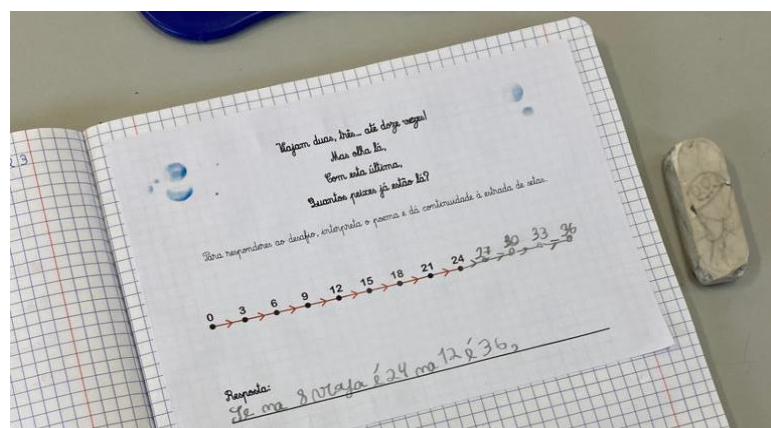 Viajam duas, três... até doze vezes!
Mas olha lá,
Com esta última,
Quantos peixes já estão lá?
Para responderes ao desafio, interpreta o poema e dá continuidade à estrada de setas.
0 3 6 9 12 15 18 21 24 27 30 33 36
Resposta:
Se na 8 viaja é 24 na 12 é 36,